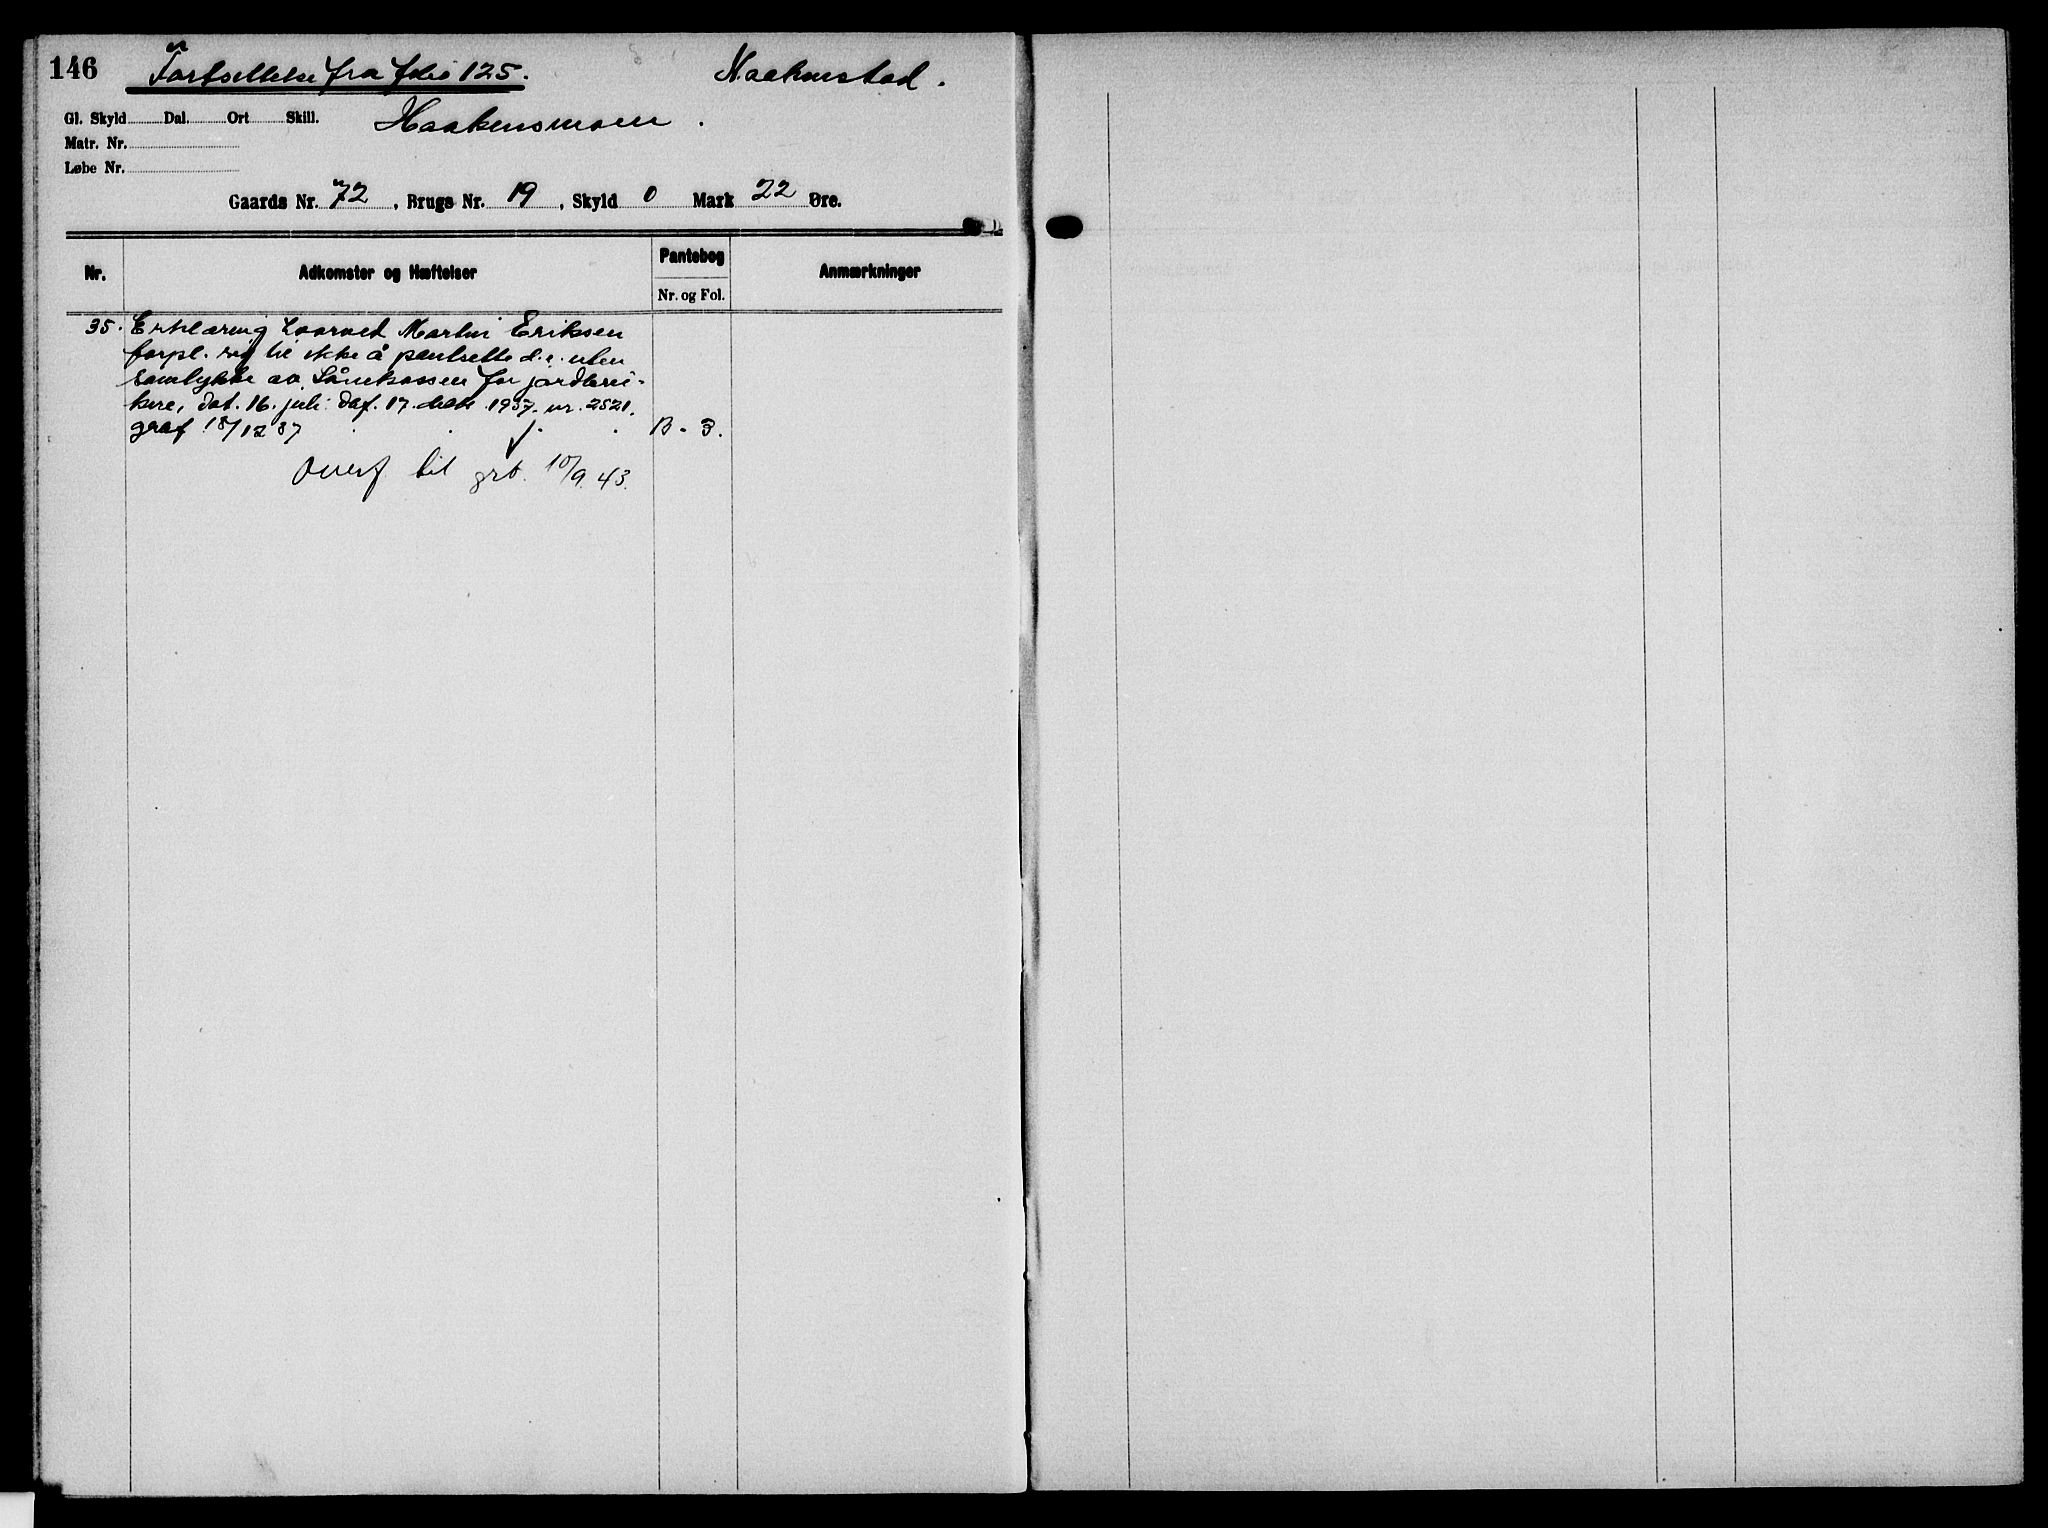 146 Fortsettelse fra folio 125. Haakenstad.
Gl. Skyld Dal. Ort Skill. Haakensmoen.
Matr. Nr.
Løbe Nr.
Gaards Nr. 72, Brugs Nr. 19, Skyld 0 Mark 22 Øre.
Nr. Adkomster og Hæftelser Pantebog Anmærkninger
Nr. og Fol.
35. Erklæring hvorved Martin Eriksen
forpl. sig til ikke å pantsette d.e. uten
samtykke av Lånekassen for jordbru-
kere, dat. 16. juli daf. 17. 1937. nr. 2521.
graf 18/12 37 B - 3.
Overf til grb. 10/9.43.